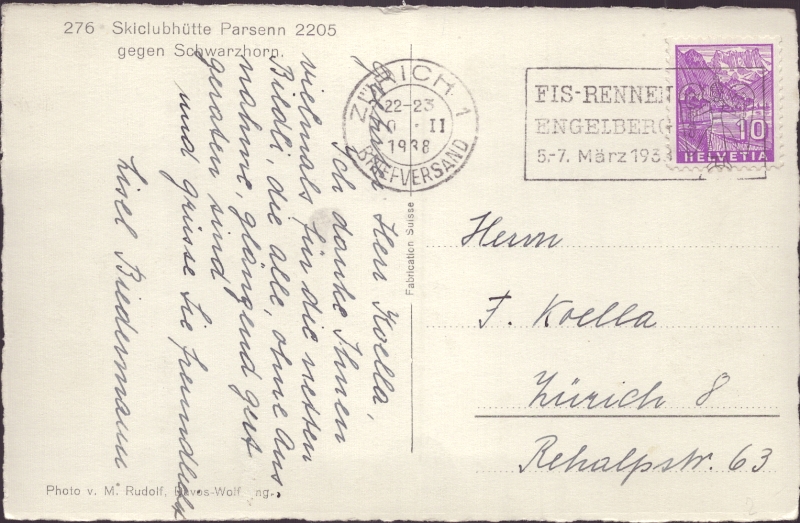 276 Skiclubhütte Parsenn 2205
gegen Schwarzhorn.
ZÜRICH 1
22-23
II
1938
BRIEFVERSAND
FIS-RENNEN
ENGELBERG
5.-7. März 193
10
HELVETIA
Herr Koella,
Ich danke Ihnen
vielmals für die netten
Bildli, die alle, ohne Aus-
nahme, glänzend gut
geraten sind
und grüsse Sie freundlich
Lisel Biedermann
Fabrication Suisse
Herrn
F. Koella
Zürich 8
Rehalpstr. 63
Photo v. M. Rudolf, Davos-Wolf ng.